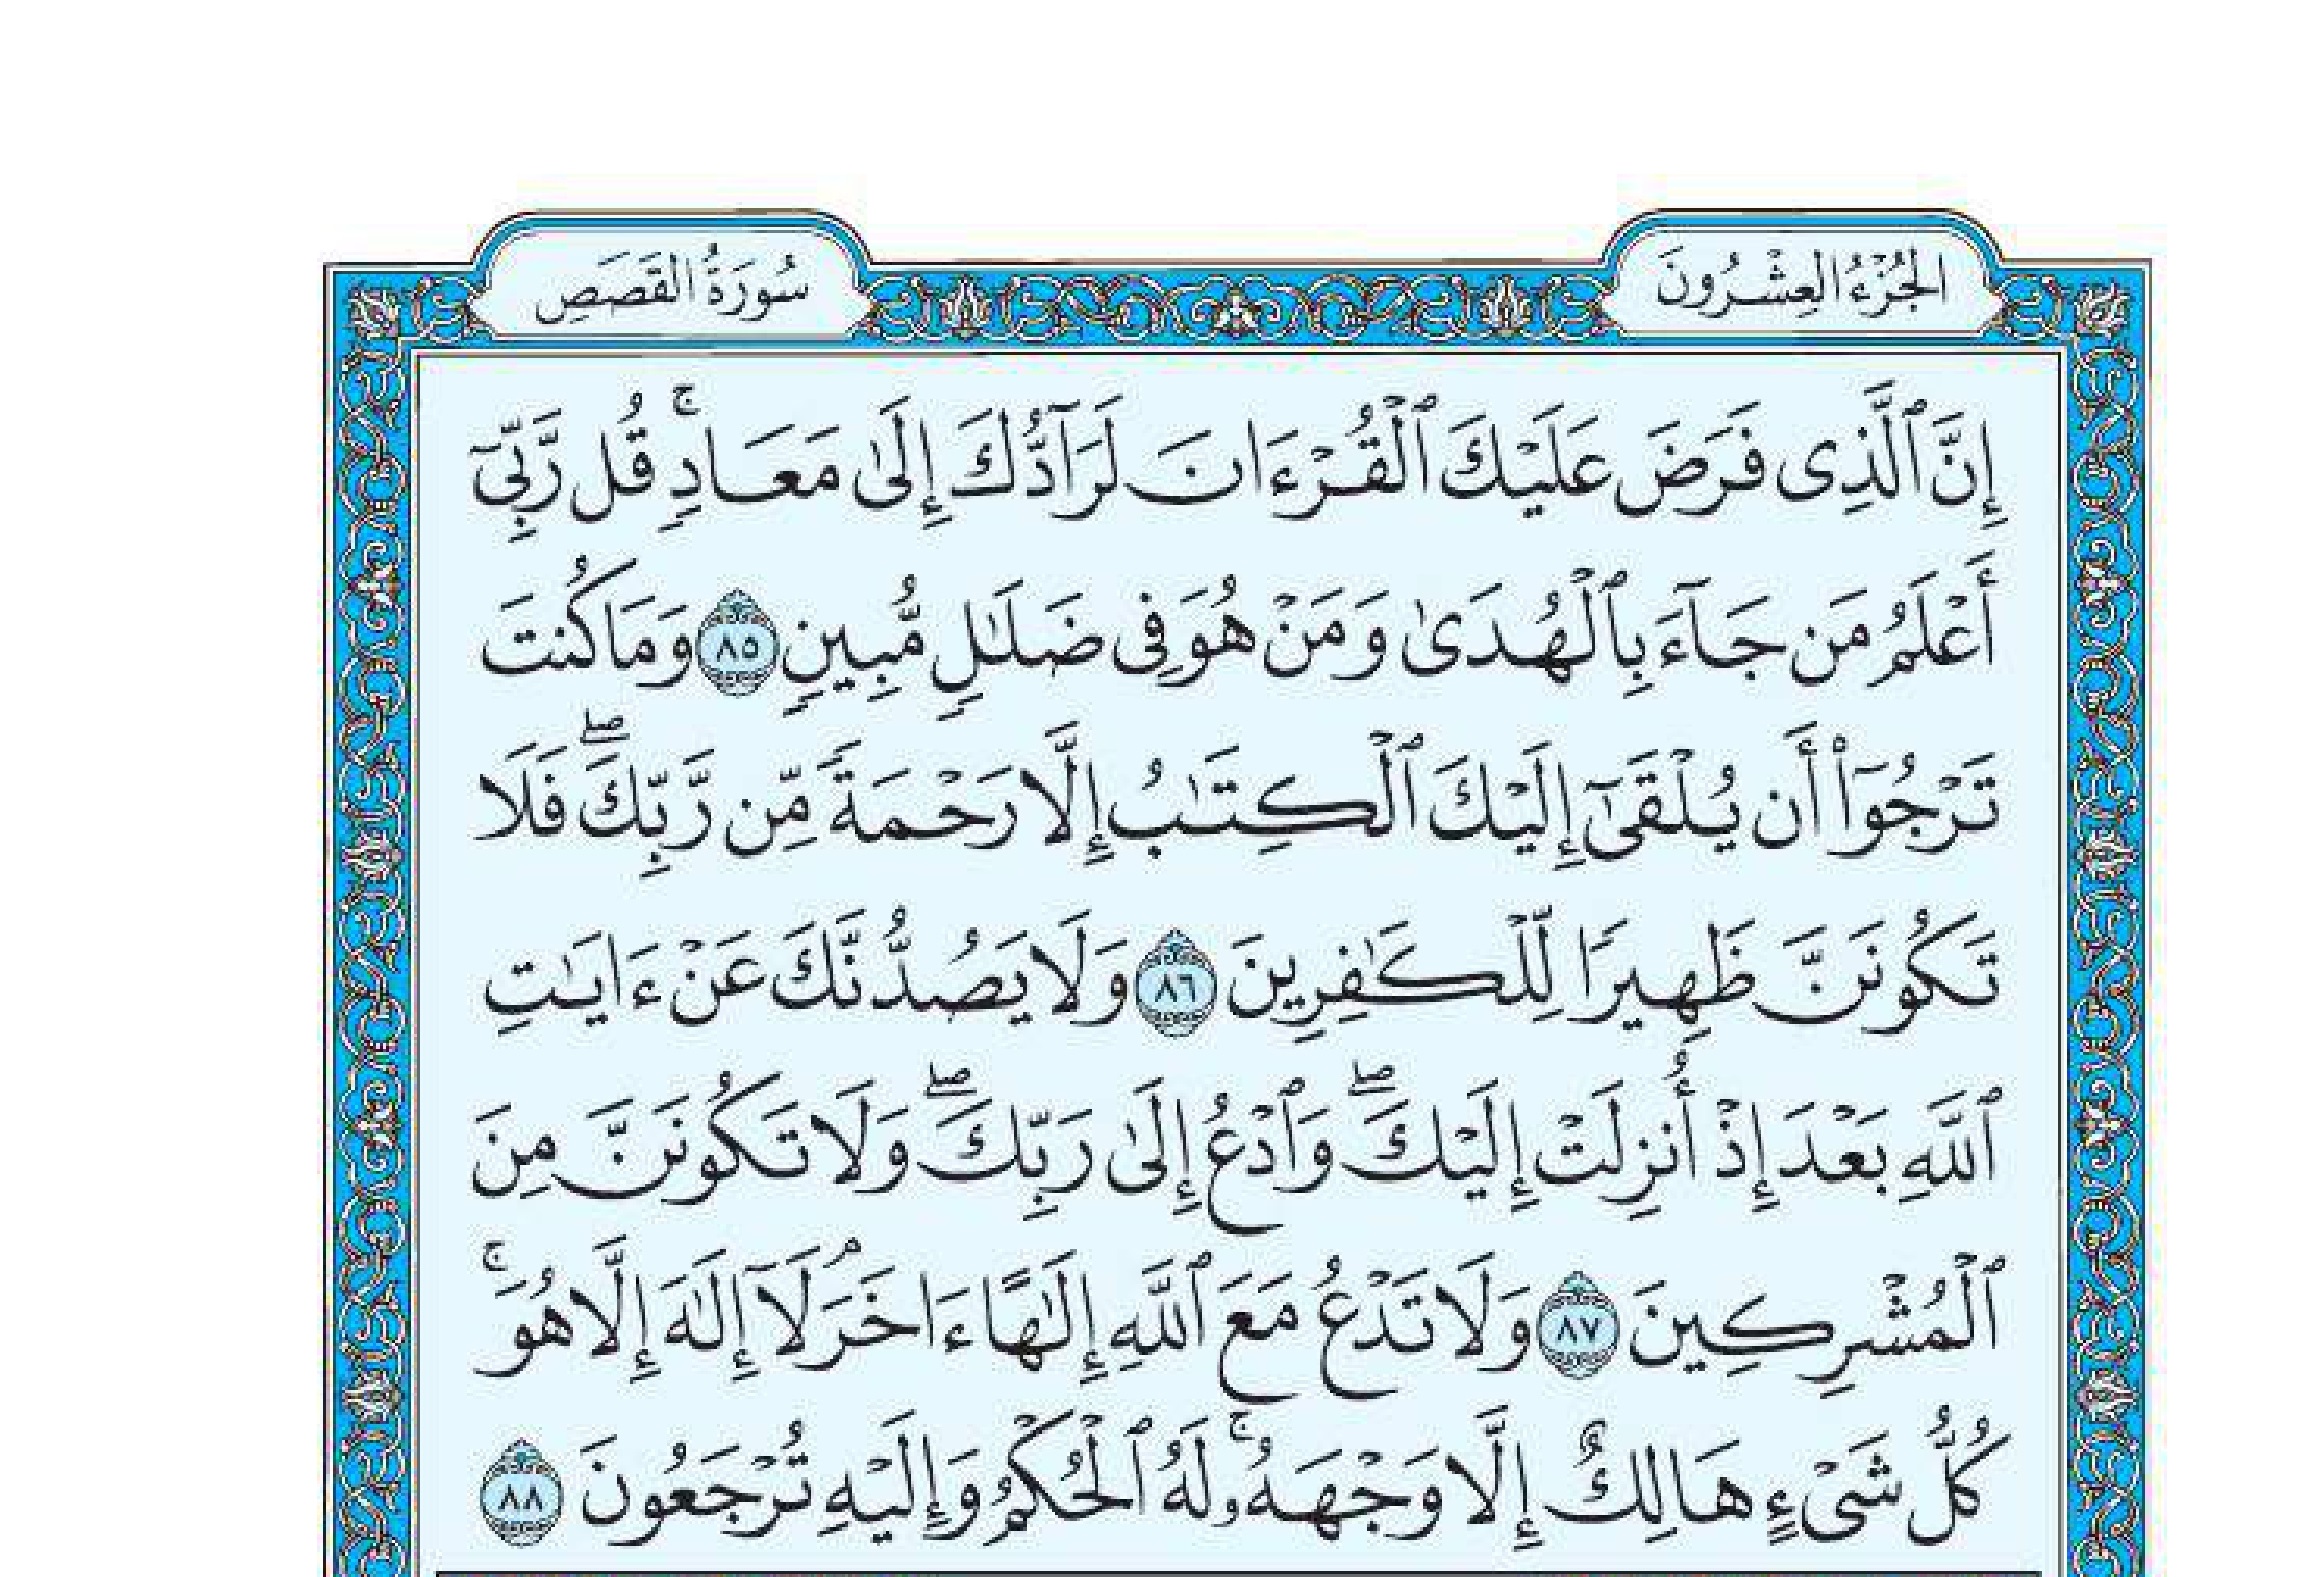 الجُزْءُ العِشْرُونَ
سُورَةُ القَصَصِ
إِنَّ ٱلَّذِى فَرَضَ عَلَيْكَ ٱلْقُرْءَانَ لَرَآدُّكَ إِلَىٰ مَعَادٍۚ قُل رَّبِّىٓ
أَعْلَمُ مَن جَآءَ بِٱلْهُدَىٰ وَمَنْ هُوَ فِى ضَلَٰلٍ مُّبِينٍ ٨٥ وَمَا كُنتَ
تَرْجُوٓا۟ أَن يُلْقَىٰٓ إِلَيْكَ ٱلْكِتَٰبُ إِلَّا رَحْمَةً مِّن رَّبِّكَۖ فَلَا
تَكُونَنَّ ظَهِيرًا لِّلْكَٰفِرِينَ ٨٦ وَلَا يَصُدُّنَّكَ عَنْ ءَايَٰتِ
ٱللَّهِ بَعْدَ إِذْ أُنزِلَتْ إِلَيْكَۖ وَٱدْعُ إِلَىٰ رَبِّكَۖ وَلَا تَكُونَنَّ مِنَ
ٱلْمُشْرِكِينَ ٨٧ وَلَا تَدْعُ مَعَ ٱللَّهِ إِلَٰهًا ءَاخَرَۘ لَآ إِلَٰهَ إِلَّا هُوَۚ
كُلُّ شَىْءٍ هَالِكٌ إِلَّا وَجْهَهُۥۚ لَهُ ٱلْحُكْمُ وَإِلَيْهِ تُرْجَعُونَ ٨٨